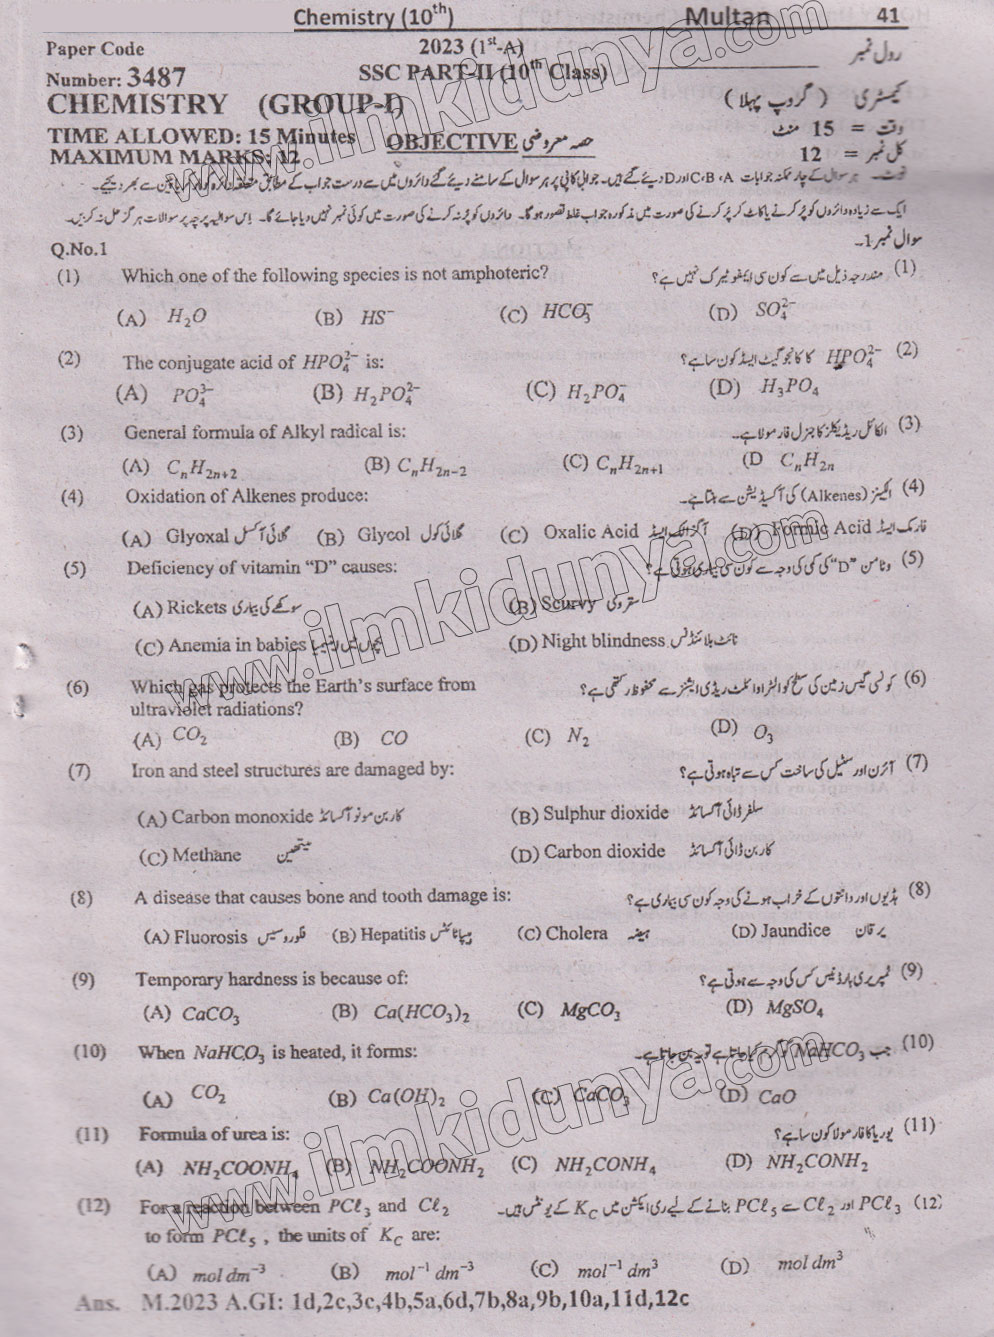 Chemistry (10th) Multan 41
Paper Code 2023 (1st-A) رول نمبر
Number: 3487 SSC PART-II (10th Class)
CHEMISTRY (GROUP-I) کیمسٹری (گروپ پہلا)
TIME ALLOWED: 15 Minutes OBJECTIVE حصہ معروضی وقت = 15 منٹ
MAXIMUM MARKS: 12 کل نمبر = 12
نوٹ۔ ہر سوال کے چار ممکنہ جوابات A، B، C اور D دیئے گئے ہیں۔ جوابی کاپی پر ہر سوال کے سامنے دیئے گئے دائروں میں سے درست جواب کے مطابق متعلقہ دائرہ کو مارکر یا پین سے بھر دیجیے۔
ایک سے زیادہ دائروں کو پُر کرنے یا کاٹ کر پُر کرنے کی صورت میں مذکورہ جواب غلط تصور ہوگا۔ دائروں کو پُر نہ کرنے کی صورت میں کوئی نمبر نہیں دیا جائے گا۔ اِس سوالیہ پرچہ پر سوالات ہرگز حل نہ کریں۔
Q.No.1 سوال نمبر 1۔
(1) Which one of the following species is not amphoteric? مندرجہ ذیل میں سے کون سی ایمفوٹیرک نہیں ہے؟ (1)
(A) H₂O (B) HS⁻ (C) HCO₃⁻ (D) SO₄²⁻
(2) The conjugate acid of HPO₄²⁻ is: HPO₄²⁻ کا کانجوگیٹ ایسڈ کون سا ہے؟ (2)
(A) PO₄³⁻ (B) H₂PO₄²⁻ (C) H₂PO₄⁻ (D) H₃PO₄
(3) General formula of Alkyl radical is: الکائل ریڈیکلز کا جنرل فارمولا ہے۔ (3)
(A) CₙH₂ₙ₊₂ (B) CₙH₂ₙ₋₂ (C) CₙH₂ₙ₊₁ (D CₙH₂ₙ
(4) Oxidation of Alkenes produce: الکینز (Alkenes) کی آکسیڈیشن سے بنتا ہے۔ (4)
(A) Glyoxal گلائی آکسل (B) Glycol گلائی کول (C) Oxalic Acid آگزالک ایسڈ (D) Formic Acid فارمک ایسڈ
(5) Deficiency of vitamin “D” causes: وٹامن “D” کی کمی کی وجہ سے کون سی بیماری ہوتی ہے؟ (5)
(A) Rickets سوکھے کی بیماری (B) Scurvy سکروی
(C) Anemia in babies بچوں میں اینیمیا (D) Night blindness نائٹ بلائنڈنس
(6) Which gas protects the Earth’s surface from کونسی گیس زمین کی سطح کو الٹراوائلٹ ریڈی ایشنز سے محفوظ رکھتی ہے؟ (6)
ultraviolet radiations?
(A) CO₂ (B) CO (C) N₂ (D) O₃
(7) Iron and steel structures are damaged by: آئرن اور سٹیل کی ساخت کس سے تباہ ہوتی ہے؟ (7)
(A) Carbon monoxide کاربن مونو آکسائڈ (B) Sulphur dioxide سلفر ڈائی آکسائڈ
(C) Methane میتھین (D) Carbon dioxide کاربن ڈائی آکسائڈ
(8) A disease that causes bone and tooth damage is: ہڈیوں اور دانتوں کے خراب ہونے کی وجہ کون سی بیماری ہے؟ (8)
(A) Fluorosis فلوروسیس (B) Hepatitis ہیپاٹائٹس (C) Cholera ہیضہ (D) Jaundice یرقان
(9) Temporary hardness is because of: ٹمپریری ہارڈنیس کس کی وجہ سے ہوتی ہے؟ (9)
(A) CaCO₃ (B) Ca(HCO₃)₂ (C) MgCO₃ (D) MgSO₄
(10) When NaHCO₃ is heated, it forms: جب NaHCO₃ کو گرم کیا جاتا ہے تو یہ بن جاتا ہے۔ (10)
(A) CO₂ (B) Ca(OH)₂ (C) CaCO₃ (D) CaO
(11) Formula of urea is: یوریا کا فارمولا کون سا ہے؟ (11)
(A) NH₂COONH₄ (B) NH₂COONH₂ (C) NH₂CONH₄ (D) NH₂CONH₂
(12) For a reaction between PCℓ₃ and Cℓ₂ PCℓ₃ اور Cℓ₂ سے PCℓ₅ بنانے کے لیے ری ایکشن میں K_C کے یونٹس ہیں۔ (12)
to form PCℓ₅ , the units of K_C are:
(A) mol dm⁻³ (B) mol⁻¹ dm⁻³ (C) mol⁻¹ dm³ (D) mol dm³
Ans. M.2023 A.GI: 1d,2c,3c,4b,5a,6d,7b,8a,9b,10a,11d,12c
www.ilmkidunya.com
www.ilmkidunya.com
www.ilmkidunya.com